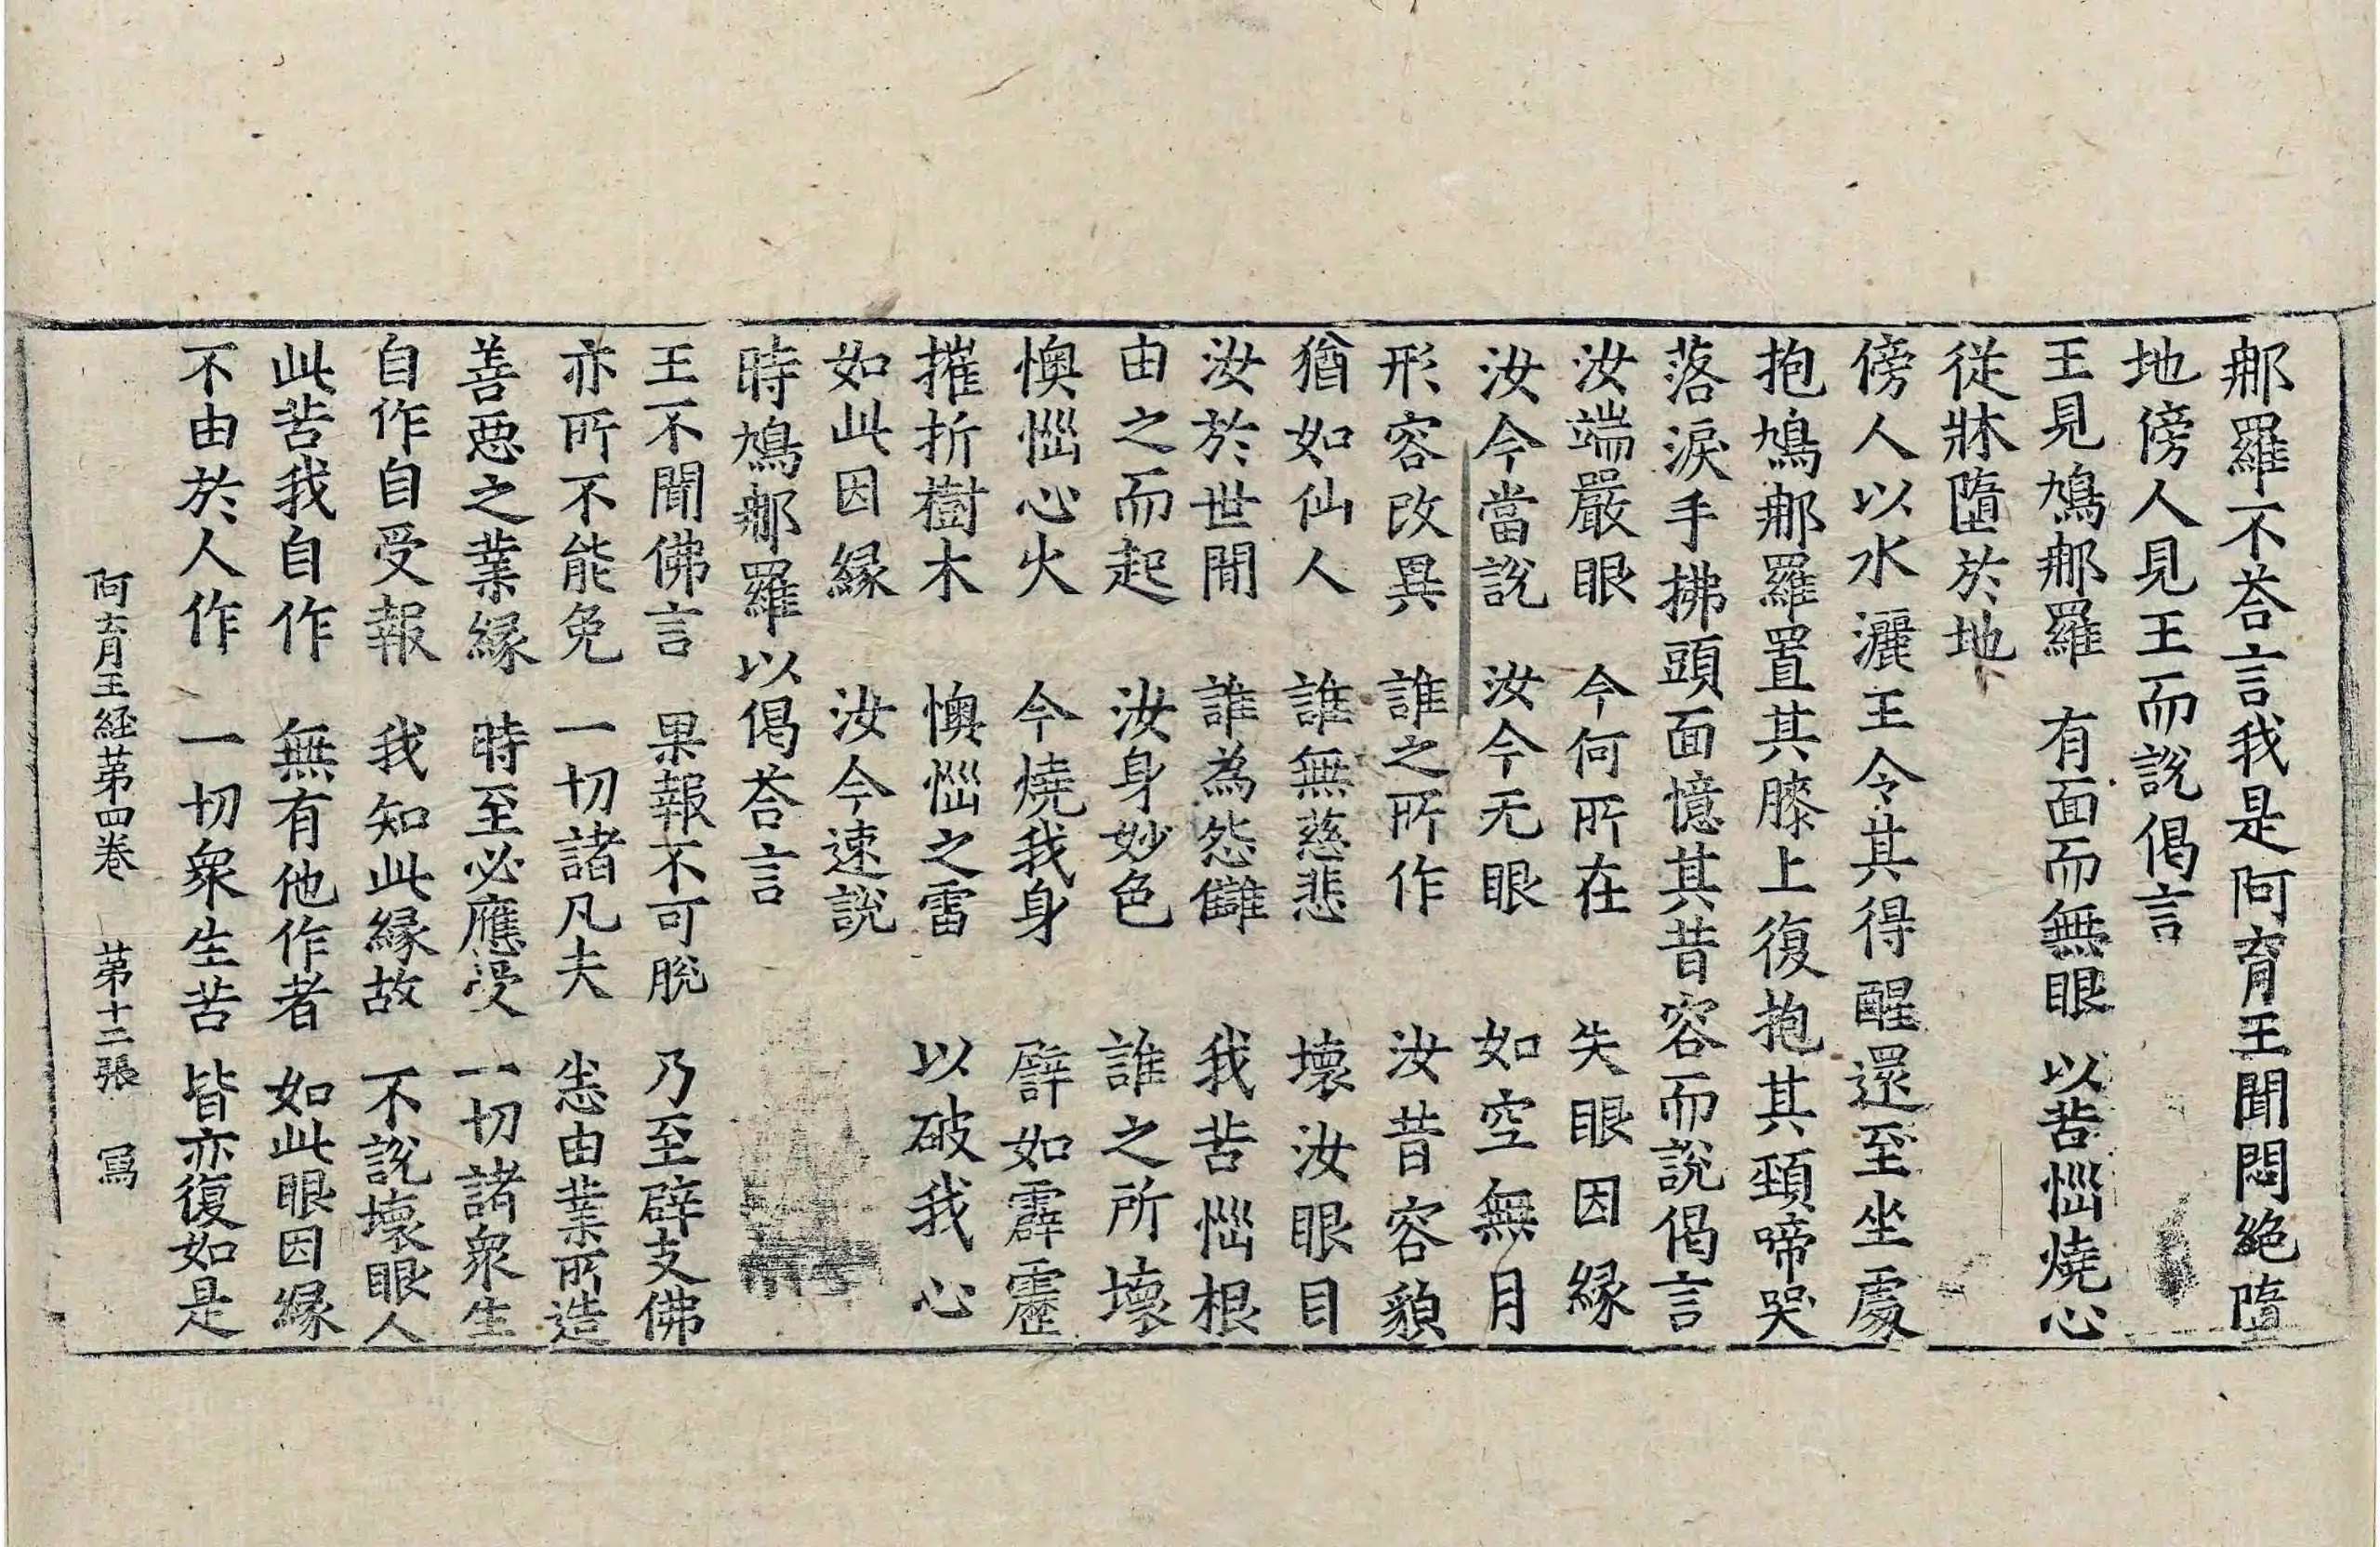 郍羅不荅言我是阿育王聞悶絶墮
地傍人見王而說偈言
王見鳩郍羅　有面而無眼　以苦惱燒心
従牀墮於地
傍人以水灑王令其得醒還至坐處
抱鳩郍羅置其膝上復抱其頸啼哭
落淚手拂頭面憶其昔容而說偈言
汝端嚴眼　今何所在　失眼因緣
汝今當說　汝今无眼　如空無月
形容改異　誰之所作　汝昔容貌
猶如仙人　誰無慈悲　壞汝眼目
汝於世間　誰為怨讎　我苦惱根
由之而起　汝身妙色　誰之所壞
懊惱心火　今燒我身　譬如霹靂
摧折樹木　懊惱之雷　以破我心
如此因緣　汝今速說
時鳩郍羅以偈荅言
王不聞佛言　果報不可脫　乃至辟支佛
亦所不能免　一切諸凡夫　悉由業所造
善惡之業緣　時至必應受　一切諸衆生
自作自受報　我知此緣故　不說壞眼人
此苦我自作　無有他作者　如此眼因緣
不由於人作　一切衆生苦　皆亦復如是
阿育王経苐四巻　苐十二張　寫